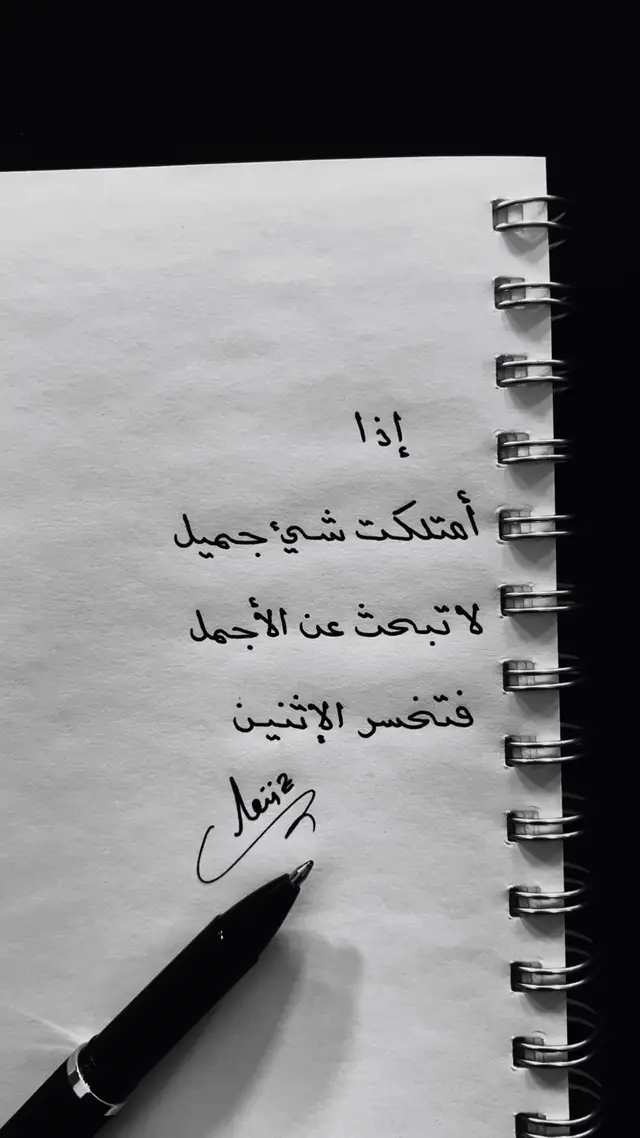 إذا
أمتلكت شيئ جميل
لا تبحث عن الأجمل
فتخسر الإثنين